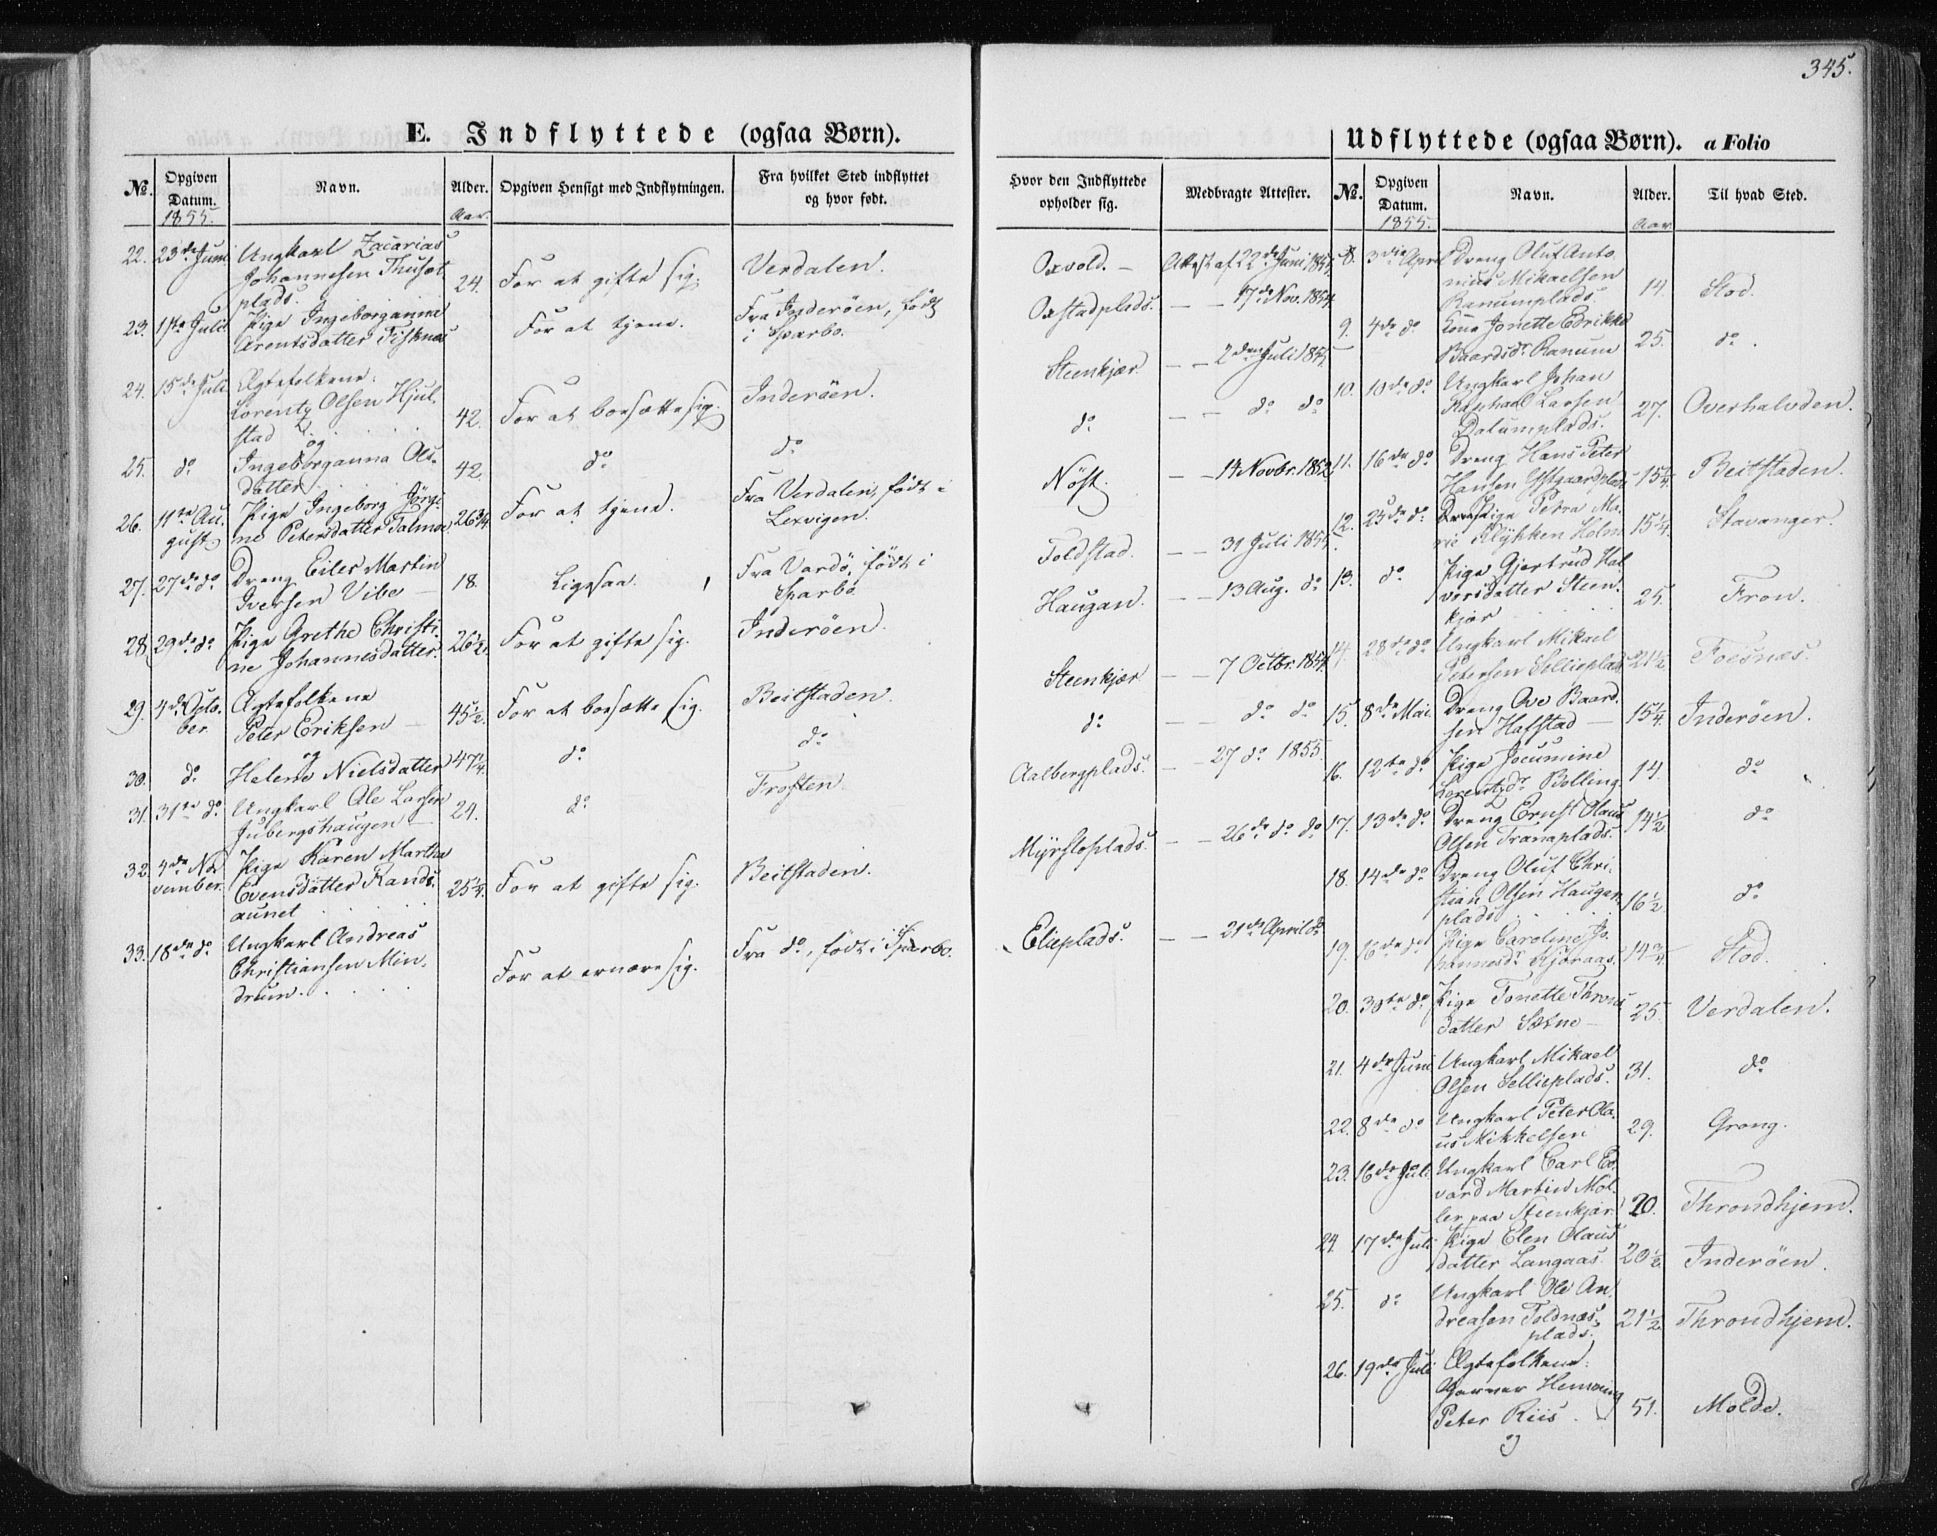 345.
E. Indflyttede (ogsaa Børn).
No. Opgiven Datum. Navn. Alder. Opgiven Hensigt med Indflytningen. Fra hvilket Sted indflyttet og hvor født. Hvor den Indflyttede opholder sig. Medbragte Attester.
1855. Aar.
22. 23de Juni Ungkarl Zacarias
Johannesen Thusøt
plads. 24. For at gifte sig Verdalen. Oxvold. — Attest af 22de Juni 1855.
23. 1ste Juli Pige Ingeborganna
Arentsdatter Fisknæs For at tjene. Fra Inderöen, född
i Sparbo. Oxstadplads. — — 17de Nov. 1854
24. 15de Juli Ægtefolkene:
Lorentz Olsen Hjul-
stad 42. For at bosætte sig. Inderöen. Steenkjær. — — 2den Juli 1855.
og
25. do Ingeborganna Ols-
datter 42. do do do — — do do
26. 11te Au-
gust Pige Ingeborg Jörgi-
ne Petersdatter 26 3/4 For at tjene. Fra Verdalen, født i
Lexvigen. Nöst. — 14 Novbr. 1852
27. 27de do Dreng Eiler Martin
Iversen Vibe — 18. Ligesaa. Fra Vardö, født i
Sparbo. Foldstad. — — 31 Juli 1855.
28. 29de do Pige Grethe Christi-
ne Johannesdatter. 26 1/2 For at gifte sig. Inderöen. Haugan. — — 13 Aug. do
29. 4de Octo-
ber Ægtefolkene
Peter Eriksen — 45 1/2. For at bosætte sig. Beitstaden. Steenkjær — — 7 Octbr. 1854
og
30. do Helene Nielsdatter 47 1/4. do do do — — do do
31. 31te do Ungkarl Ole Larsen
Jubergshaugen — 24. do Frosten. Aalbergplads. — — 27 do 1855
32. 4de No-
vember. Pige Karen Martha
Evensdatter Rands-
aunet 25 1/4. For at gifte sig. Beitstaden. Myrsloplads. — — 26de do do
33. 18de do Ungkarl Andreas
Christiansen Min-
drum. For at ernære sig. Fra do, født i Sparbo. Elieplads. — — 21de April do
Udflyttede (ogsaa Børn). a Folio
No. Opgiven Datum. Navn. Alder. Til hvad Sted.
1855. Aar
8. 3die April Dreng Oluf Anto-
nius Mikaelsen
Ranumplads. 14. Stod.
9. 4de do Kone Jonette Edrikke
Baardsdr Ranum 25. do.
10. 10de do Ungkarl Johan
Raphael Larsen
Dalumplads. 27. Overhalvden.
11. 16de do Dreng Hans Peter
Hansen 15 1/4. Beitstaden.
12. 25de do Pige Petra Ma-
rie Klykken Holm 15 1/4. Stavanger.
13. do Pige Gjertrud Hal-
vorsdatter Steen-
kjær 25. Fron.
14. 28de do Ungkarl Mikael
Petersen Sellieplads 21 1/2 Foesnæs.
15. 8de Mai. Dreng Ove Baard-
sen Hafstad — 15 1/4. Inderöen.
16. 12te do Pige Jocumine
Lorentzdr Bolling 14. do
17. 13de do Dreng Ernst Olaus
Olsen Tranaplads. 14 1/2 do
18. 14de do Dreng Oluf Chri-
stian Olsen Haugan-
plads 16 1/2. do
19. 16de do Pige Caroline Jo-
hannesdr 14 3/4 Stod.
20. 30te do Pige Tonette Throns-
datter Sætne — 25. Verdalen.
21. 4de Juni Ungkarl Mikael
Olsen Sellieplads. 31. do
22. 8de do Ungkarl Peter Ola-
us Mikkelsen 29. Grong.
23. 16de Juli Ungkarl Carl Ed-
vard Martin Mol-
ler paa Steenkjær. 20. Throndhjem.
24. 17de Juli Pige Elen Olaus
datter Langaas. 20 1/2 Inderöen.
25. do Ungkarl Ole An-
dreasen Foldnæs-
plads. 21 1/2 Throndhjem.
26. 19de Juli Ægtefolkene:
Garver Henning
Peter Riis. 51. Molde.
og